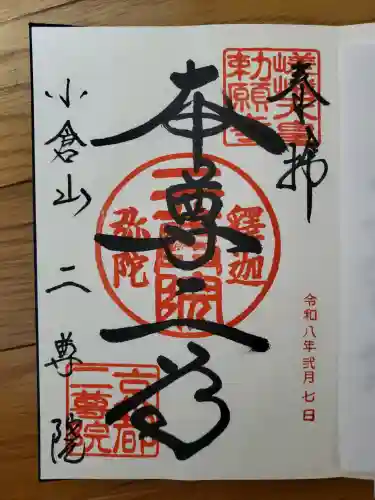 奉拝
嵯峨天皇
勅願寺
令和八年弐月七日
本尊二尊
釋迦
二尊院
弥陀
小倉山二尊院
京都
二尊院